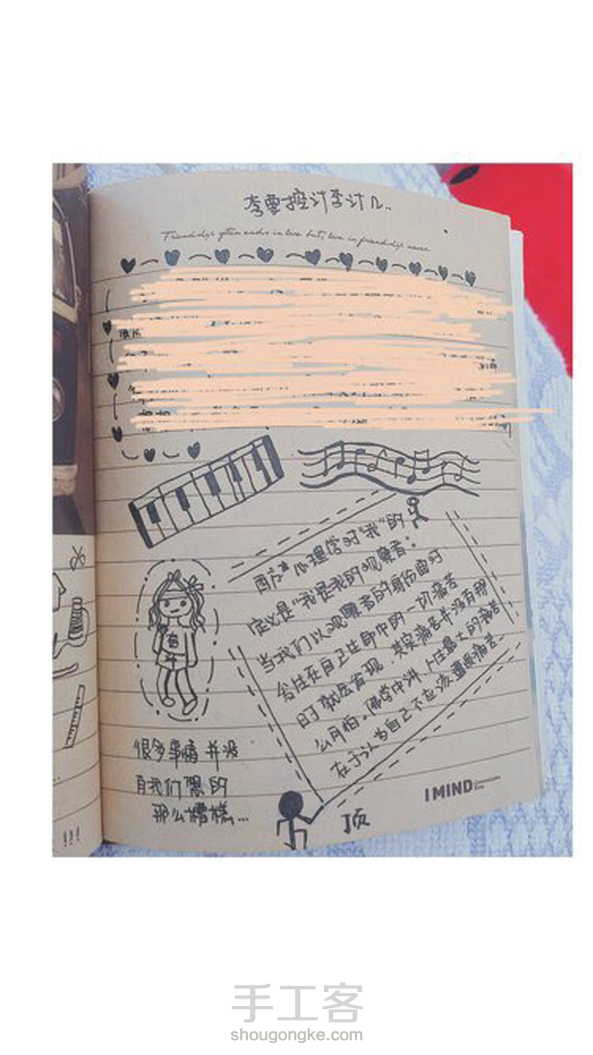 Friendship often ends in love but; love in friendship never.
西方心理学对“我”的
定义是“我是我的观察者”
当我们以观察者的身份面对
在自己生命中的一切痛苦
时就会发现,其实痛苦并没有那
么可怕。佛学中讲,人生最大的痛苦
在于认为自己不应该遭受痛苦。
很多事情并没
有我们想的
那么糟糕...
I MIND
顶
!!!
手工客
shougongke.com